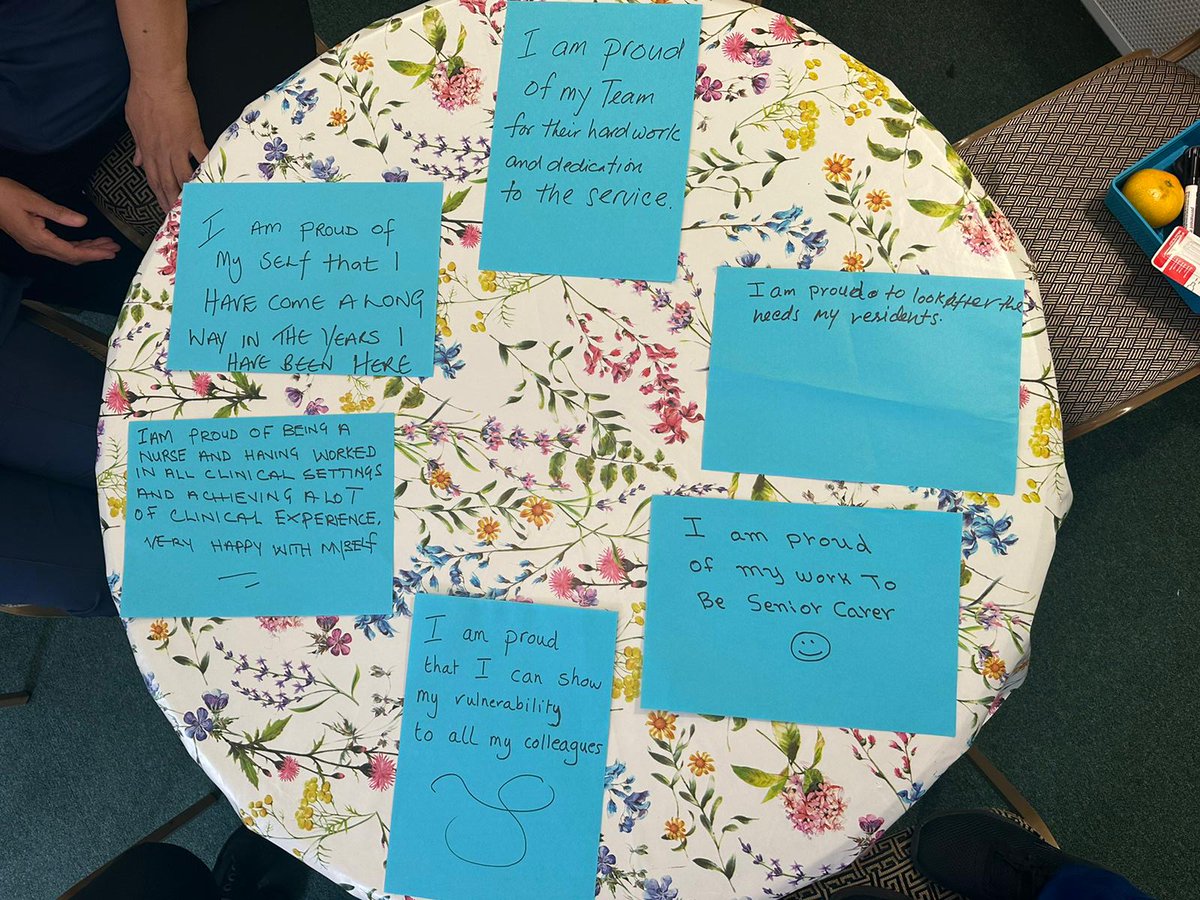 I am proud
of my Team
for their hard work
and dedication
to the service.
I AM PROUD OF
MY SELF that I
HAVE COME A LONG
WAY IN THE YEARS I
HAVE BEEN HERE
I am proud to look after the
needs my residents.
I AM PROUD OF BEING A
NURSE AND HAVING WORKED
IN ALL CLINICAL SETTINGS
AND ACHIEVING A LOT
OF CLINICAL EXPERIENCE.
VERY HAPPY WITH MYSELF
I am proud
of my work To
Be Senior Carer
I am proud
that I can show
my vulnerability
to all my colleagues